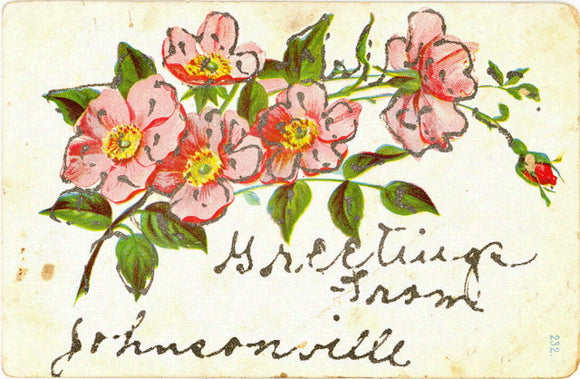 Greetings
from
Johnsonville
232.